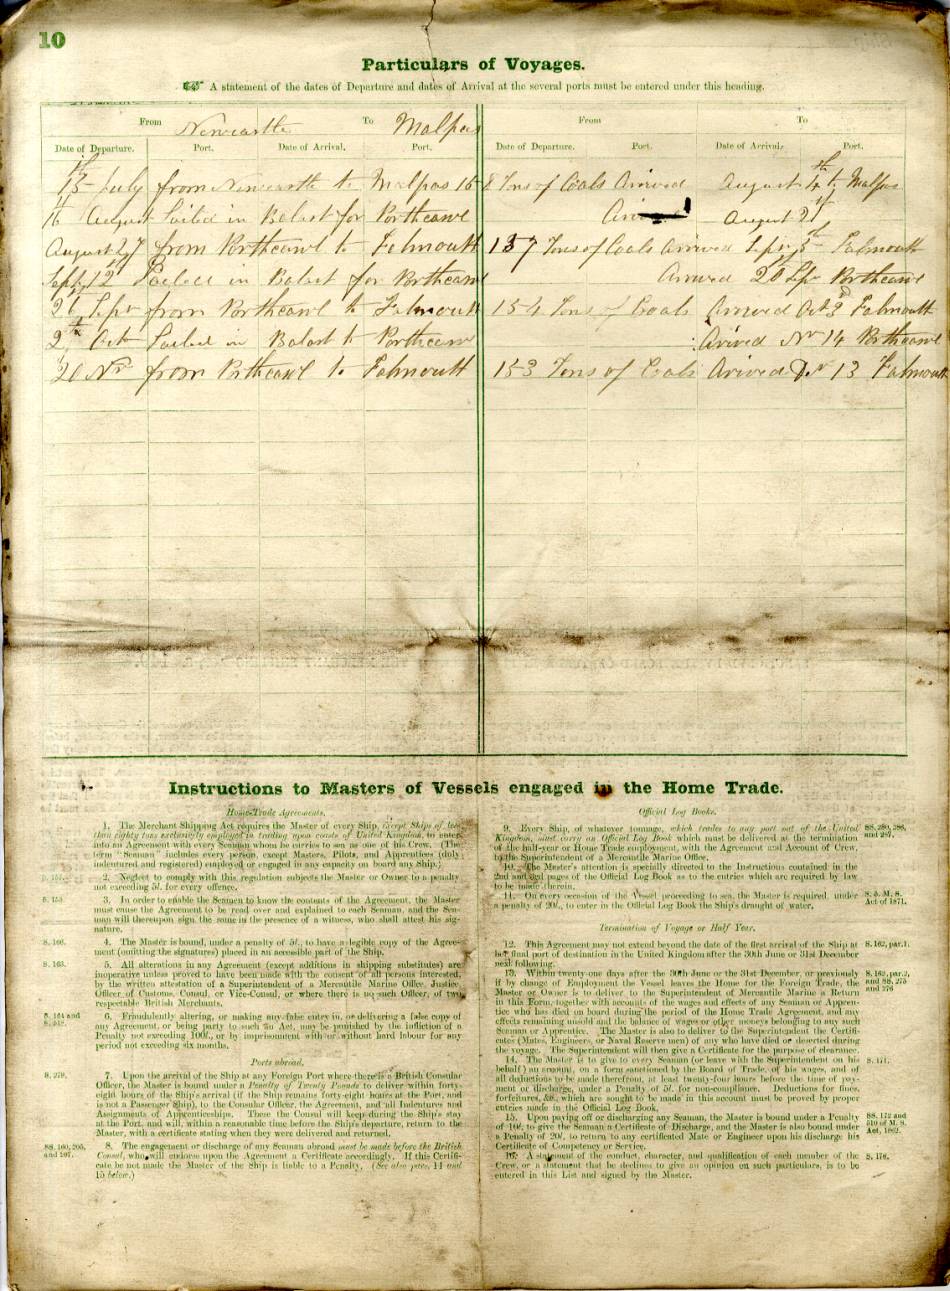 10
Particulars of Voyages.
A statement of the dates of Departure and dates of Arrival at the several ports must be entered under this heading.
From Newcastle To Malpas From To
Date of Departure. Port. Date of Arrival. Port. Date of Departure. Port. Date of Arrival. Port.
15th July from Newcastle to Malpas 158 Tons of Coals Arived August 4th to Malpas
16 August Sailed in Balast for Porthcawl August 21st
August 27 from Porthcawl to Falmouth 137 Tons of Coals Arrived Sepr 5th Falmouth
Sept 12 Sailed in Balast for Porthcawl Arived 20 Sepr Porthcawl
Sepr from Porthcawl to Falmouth 154 Tons of Coals Arived Oct 3d Falmouth
Oct Sailed in Balast to Porthcawl Arived Nr 14 Porthcawl
20 Nr from Prthcawl to Falmouth 153 Tons of Coals Arived Dr 13 Falmouth
Instructions to Masters of Vessels engaged in the Home Trade.
Home-Trade Agreements.
1. The Merchant Shipping Act requires the Master of every Ship, except Ships of less
than eighty tons exclusively employed in trading upon coasts of United Kingdom, to enter
into an Agreement with every Seaman whom he carries to sea as one of his Crew. (The
term "Seaman" includes every person, except Masters, Pilots, and Apprentices (duly
indentured and registered) employed or engaged in any capacity on board any Ship.)
S. 157. 2. Neglect to comply with this regulation subjects the Master or Owner to a penalty
not exceeding 5l. for every offence.
3. In order to enable the Seamen to know the contents of the Agreement, the Master
must cause the Agreement to be read over and explained to each Seaman, and the Sea-
man will thereupon sign the same in the presence of a witness, who shall attest his sig-
nature.
S. 166. 4. The Master is bound, under a penalty of 5l., to have a legible copy of the Agree-
ment (omitting the signatures) placed in an accessible part of the Ship.
S. 163. 5. All alterations in any Agreement (except additions in shipping substitutes) are
inoperative unless proved to have been made with the consent of all persons interested,
by the written attestation of a Superintendent of a Mercantile Marine Office, Justice,
Officer of Customs, Consul, or Vice-Consul, or where there is no such Officer, of two
respectable British Merchants.
S. 164 and 6. Fraudulently altering, or making any false entry in, or delivering a false copy of
any Agreement, or being party to such an Act, may be punished by the infliction of a
Penalty not exceeding 100l., or by imprisonment with or without hard labour for any
period not exceeding six months.
Ports abroad.
S. 279. 7. Upon the arrival of the Ship at any Foreign Port where there is a British Consular
Officer, the Master is bound under a Penalty of Twenty Pounds to deliver within forty-
eight hours of the Ship's arrival (if the Ship remains forty-eight hours at the Port, and
is not a Passenger Ship), to the Consular Officer, the Agreement, and all Indentures and
Assignments of Apprenticeships. These the Consul will keep during the Ship's stay
at the Port, and will, within a reasonable time before the Ship's departure, return to the
Master, with a certificate stating when they were delivered and returned.
SS. 160, 205, and 207. 8. The engagement or discharge of any Seaman abroad must be made before the British
Consul, who will endorse upon the Agreement a Certificate accordingly. If this Certifi-
cate be not made the Master of the Ship is liable to a Penalty. (See also paras. 14 and
15 below.)
Official Log Books.
9. Every Ship, of whatever tonnage, which trades to any port out of the United
Kingdom, must carry an Official Log Book which must be delivered at the termination
of the half-year or Home Trade employment, with the Agreement and Account of Crew,
to the Superintendent of a Mercantile Marine Office.
SS. 280, 286, and 287.
10. The Master's attention is specially directed to the Instructions contained in the
2nd and 3rd pages of the Official Log Book as to the entries which are required by law
to be made therein.
11. On every occasion of the Vessel proceeding to sea, the Master is required, under
a penalty of 20l., to enter in the Official Log Book the Ship's draught of water.
S. 5, M. S. Act of 1871.
Termination of Voyage or Half Year.
12. This Agreement may not extend beyond the date of the first arrival of the Ship at
her final port of destination in the United Kingdom after the 30th June or 31st December
next following.
S. 162, par. 1.
13. Within twenty-one days after the 30th June or the 31st December, or previously
if by change of Employment the Vessel leaves the Home for the Foreign Trade, the
Master or Owner is to deliver to the Superintendent of Mercantile Marine a Return
in this Form, together with accounts of the wages and effects of any Seaman or Appren-
tice who has died on board during the period of the Home Trade Agreement, and any
effects remaining unsold and the balance of wages or other moneys belonging to any such
Seaman or Apprentice. The Master is also to deliver to the Superintendent the Certifi-
cates (Mates, Engineers, or Naval Reserve men) of any who have died or deserted during
the voyage. The Superintendent will then give a Certificate for the purpose of clearance.
S. 162, par. 2, and SS. 275 and 276
14. The Master is to give to every Seaman (or leave with the Superintendent on his
behalf) an account, on a form sanctioned by the Board of Trade, of his wages, and of
all deductions to be made therefrom, at least twenty-four hours before the time of pay-
ment or discharge, under a Penalty of 5l. for non-compliance. Deductions for fines,
forfeitures, &c., which are sought to be made in this account must be proved by proper
entries made in the Official Log Book.
S. 171.
15. Upon paying off or discharging any Seaman, the Master is bound under a Penalty
of 10l., to give the Seaman a Certificate of Discharge, and the Master is also bound under
a Penalty of 20l., to return to any certificated Mate or Engineer upon his discharge his
Certificate of Competency or Service.
SS. 172 and of M. S. Act, 1862.
16. A statement of the conduct, character, and qualification of each member of the
Crew, or a statement that he declines to give an opinion on such particulars, is to be
entered in this List and signed by the Master.
S. 176.